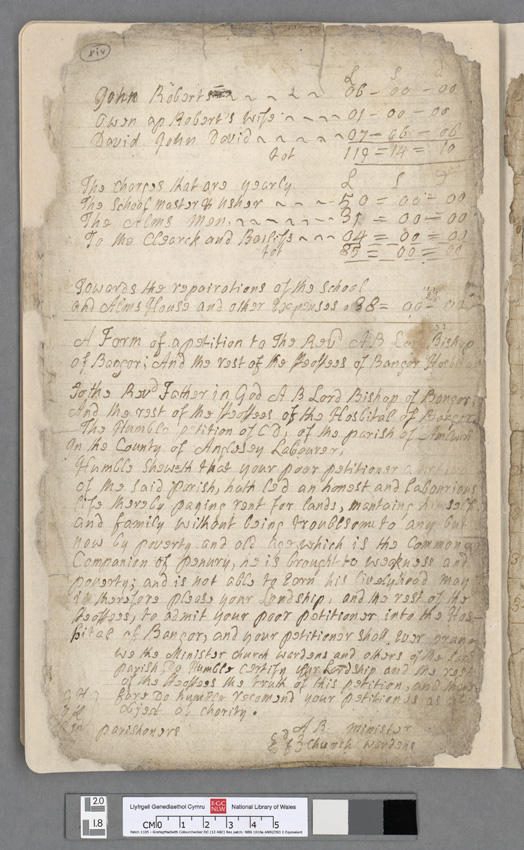 xiv
£ s d
John Roberts 06 - 00 - 00
Owen ap Robert's Wife 01 - 00 - 00
David John David 07 = 06 = 06
tot 119 = 14 = 10
The Charges that are yearly £ s d
The School master & Usher 50 = 00 = 00
The Alms Men 31 = 00 = 00
To the Clearck and Bailifs 04 = 00 = 00
tot 85 = 00 = 00
Towards the repairations of the School
and Alms House and other Expenses 38 = 00 - 00
A Form of a petition to The Revd A B Lord Bishop
of Bangor; And the rest of the Feoffees of Bangor Hosbital
To the Revd Father in God A B Lord Bishop of Bangor;
And the rest of the Feoffees of the Hosbital of Bangor
The Humble petition of C D, of the parish of
In the County of Anglesey Labourer,
Humble Sheweth that your poor petitioner
of the said Parish, hath led an honest and Labourious
life thereby paning rent for lands, mantaing himself
and family without being troublsom to any but
now by poverty and old Age which is the Common
Companion of penury, he is brought to weakness and
poverty; and is not able to Earn his livelyhead may
it therefore please your Lordship, and the rest of the
Feoffees, to admit your poor petitioner into the Hos-
bital of Bangor, and your petitioner shall Ever
We the Minister Church Wardens and others of the said
parish Do Humble Certify your Lordship and the rest
of the Feoffees the truth of this petition, and
fore Do humble recomend your petitioner as
object of Charity.
A B Minister
parishoners
Church Wardens
2.0
1.8
Llyfrgell Genedlaethol Cymru
LGC
NLW
National Library of Wales
CM 0 1 2 3 4 5